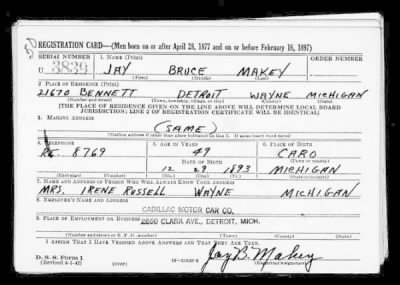 REGISTRATION CARD—(Men born on or after April 28, 1877 and on or before February 16, 1897)
SERIAL NUMBER 1. NAME (Print) ORDER NUMBER
U 3839 JAY BRUCE MAKEY
(First) (Middle) (Last)
2. PLACE OF RESIDENCE (Print)
21670 BENNETT DETROIT WAYNE MICHIGAN
(Number and street) (Town, township, village, or city) (County) (State)
[THE PLACE OF RESIDENCE GIVEN ON THE LINE ABOVE WILL DETERMINE LOCAL BOARD
JURISDICTION; LINE 2 OF REGISTRATION CERTIFICATE WILL BE IDENTICAL]
3. MAILING ADDRESS
(SAME)
[Mailing address if other than place indicated on line 2. If same insert word same]
4. TELEPHONE 5. AGE IN YEARS 6. PLACE OF BIRTH
RE. 8769 49 CARO
DATE OF BIRTH (Town or county)
12 29 1893 MICHIGAN
(Exchange) (Number) (Mo.) (Day) (Yr.) (State or country)
7. NAME AND ADDRESS OF PERSON WHO WILL ALWAYS KNOW YOUR ADDRESS
MRS. IRENE RUSSELL WAYNE MICHIGAN
8. EMPLOYER'S NAME AND ADDRESS
CADILLAC MOTOR CAR CO.
9. PLACE OF EMPLOYMENT OR BUSINESS 2860 CLARK AVE., DETROIT, MICH.
(Number and street or R. F. D. number) (Town) (County) (State)
I AFFIRM THAT I HAVE VERIFIED ABOVE ANSWERS AND THAT THEY ARE TRUE.
D. S. S. Form 1
(Revised 4-1-42) (over) Jay B. Makey
(Registrant's signature)